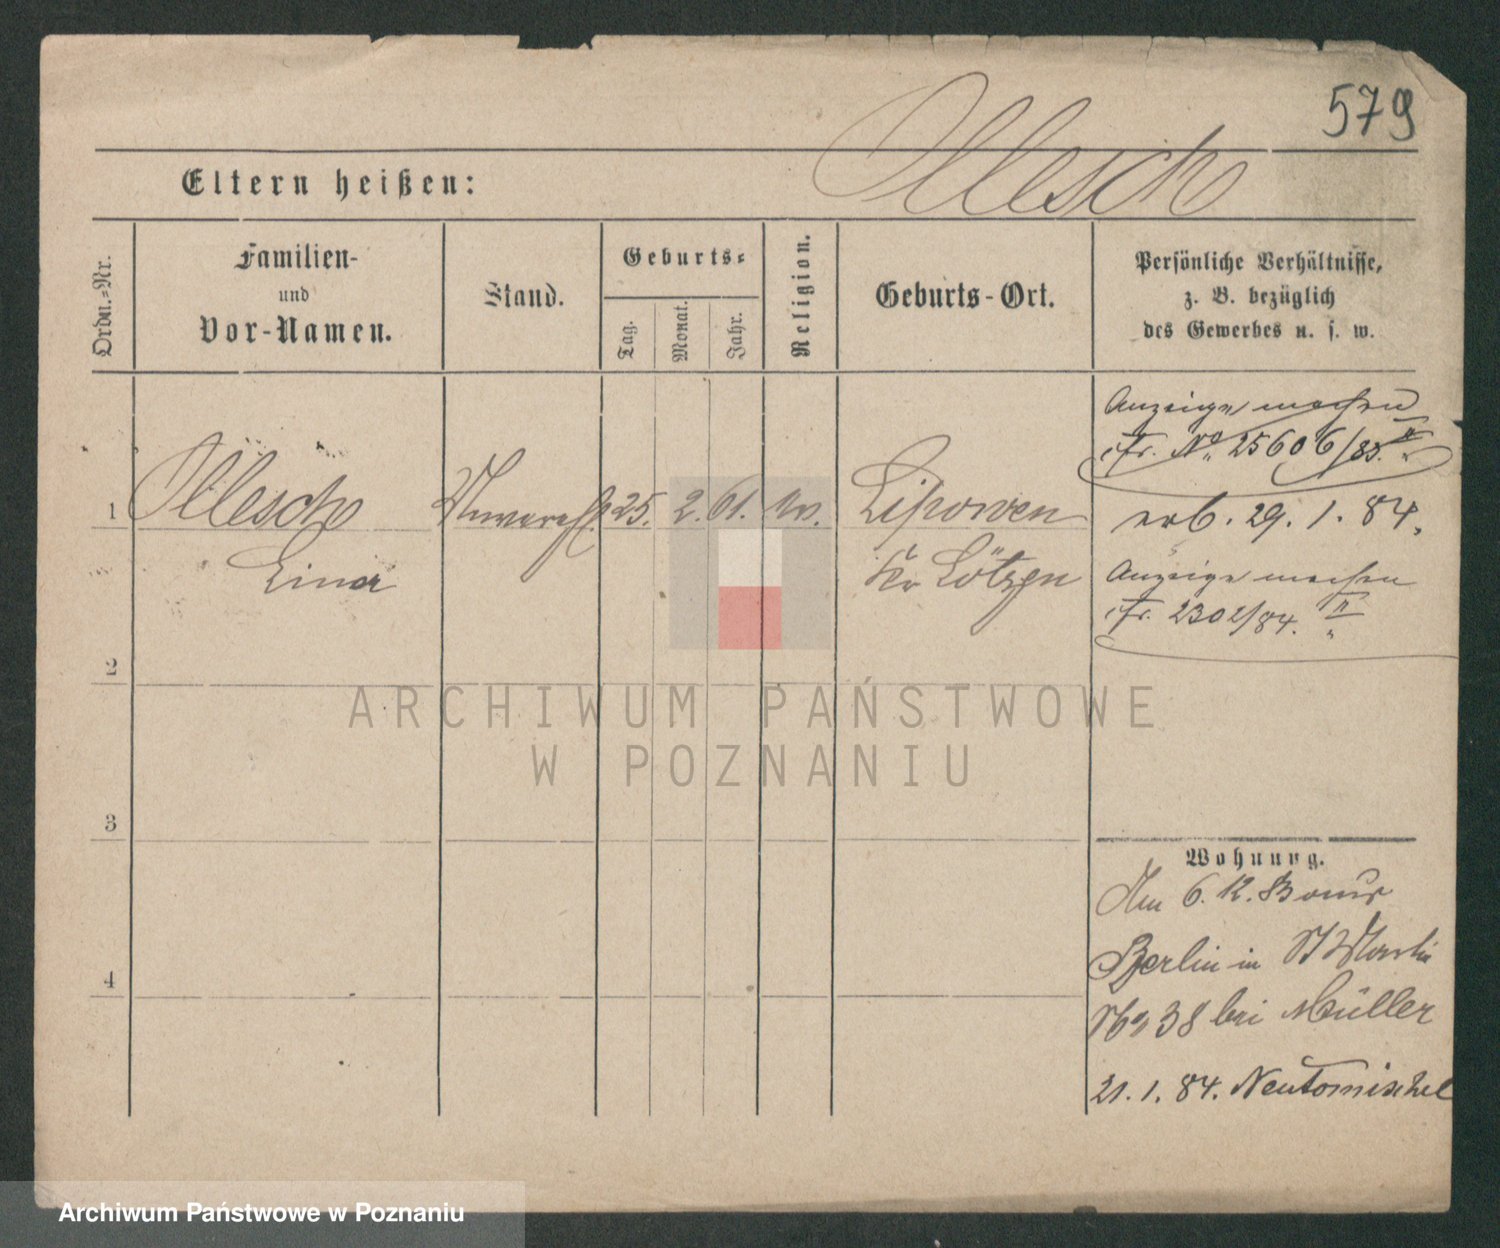 579
Ollesch
Eltern heißen:
Ordn.=Nr.
Familien-
und
Vor-Namen.
Stand.
Geburts=
Tag.
Monat.
Jahr.
Religion.
Geburts-Ort.
Persönliche Verhältnisse,
z. B. bezüglich
des Gewerbes u. s. w.
Anzeige machen
cfr. No. 25606/83. II
1
Ollesch
Unvereh.
25.
2.
61.
ev.
Lipowen
29. 1. 84.
Kr Lötzen
Anzeige machen
cfr. 2302/84. II
2
3
4
Wohnung.
Am 6. 12. 83 aus
Berlin in St Martin
No 38 bei Müller
21. 1. 84. Neutomischel
ARCHIWUM PAŃSTWOWE
W POZNANIU
Archiwum Państwowe w Poznaniu